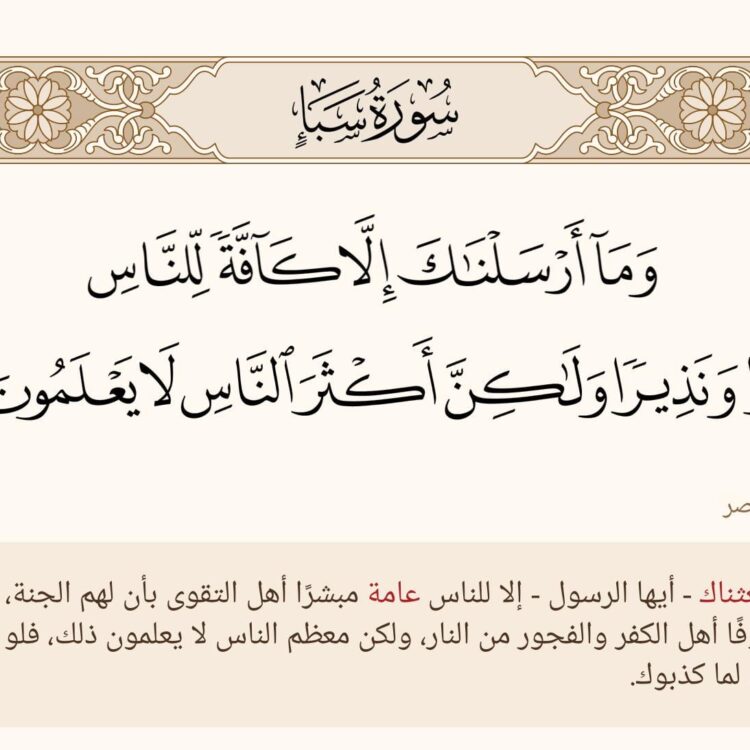 سُورَةُ سَبَإٍ
وَمَآ أَرْسَلْنَٰكَ إِلَّا كَآفَّةً لِّلنَّاسِ
وَنَذِيرًا وَلَٰكِنَّ أَكْثَرَ ٱلنَّاسِ لَا يَعْلَمُونَ
- أيها الرسول - إلا للناس عامة مبشرًا أهل التقوى بأن لهم الجنة،
أهل الكفر والفجور من النار، ولكن معظم الناس لا يعلمون ذلك، فلو
لما كذبوك.